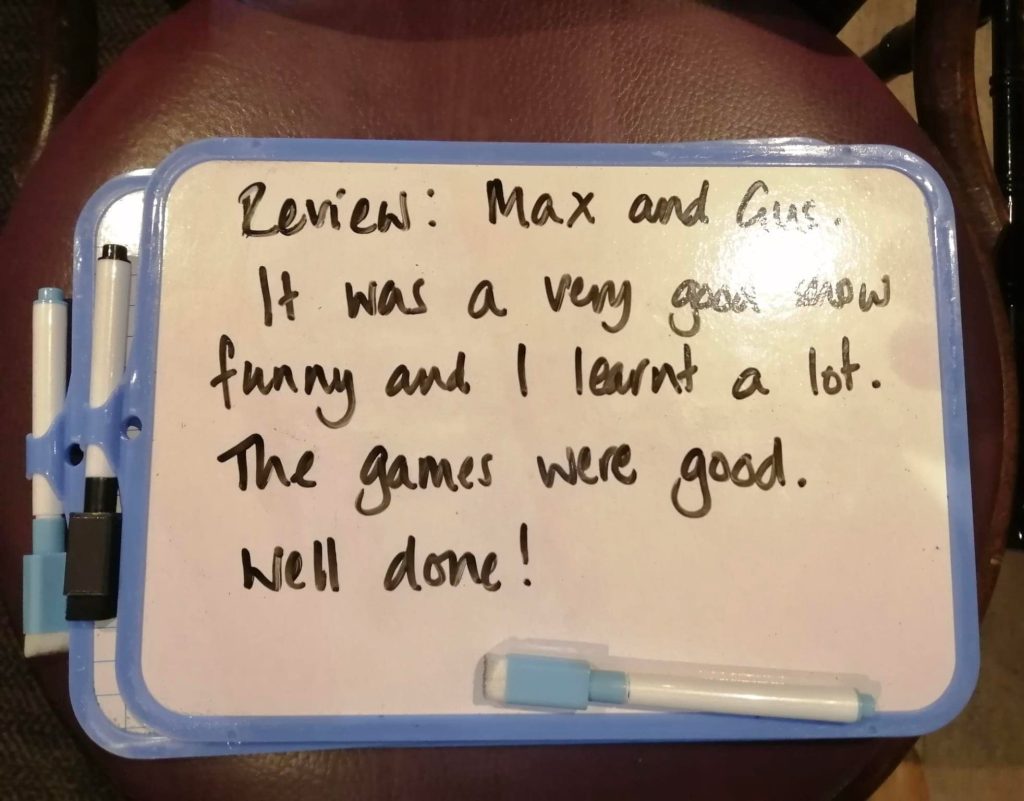 Review: Max and Gus.
It was a very good show
funny and I learnt a lot.
The games were good.
Well done!